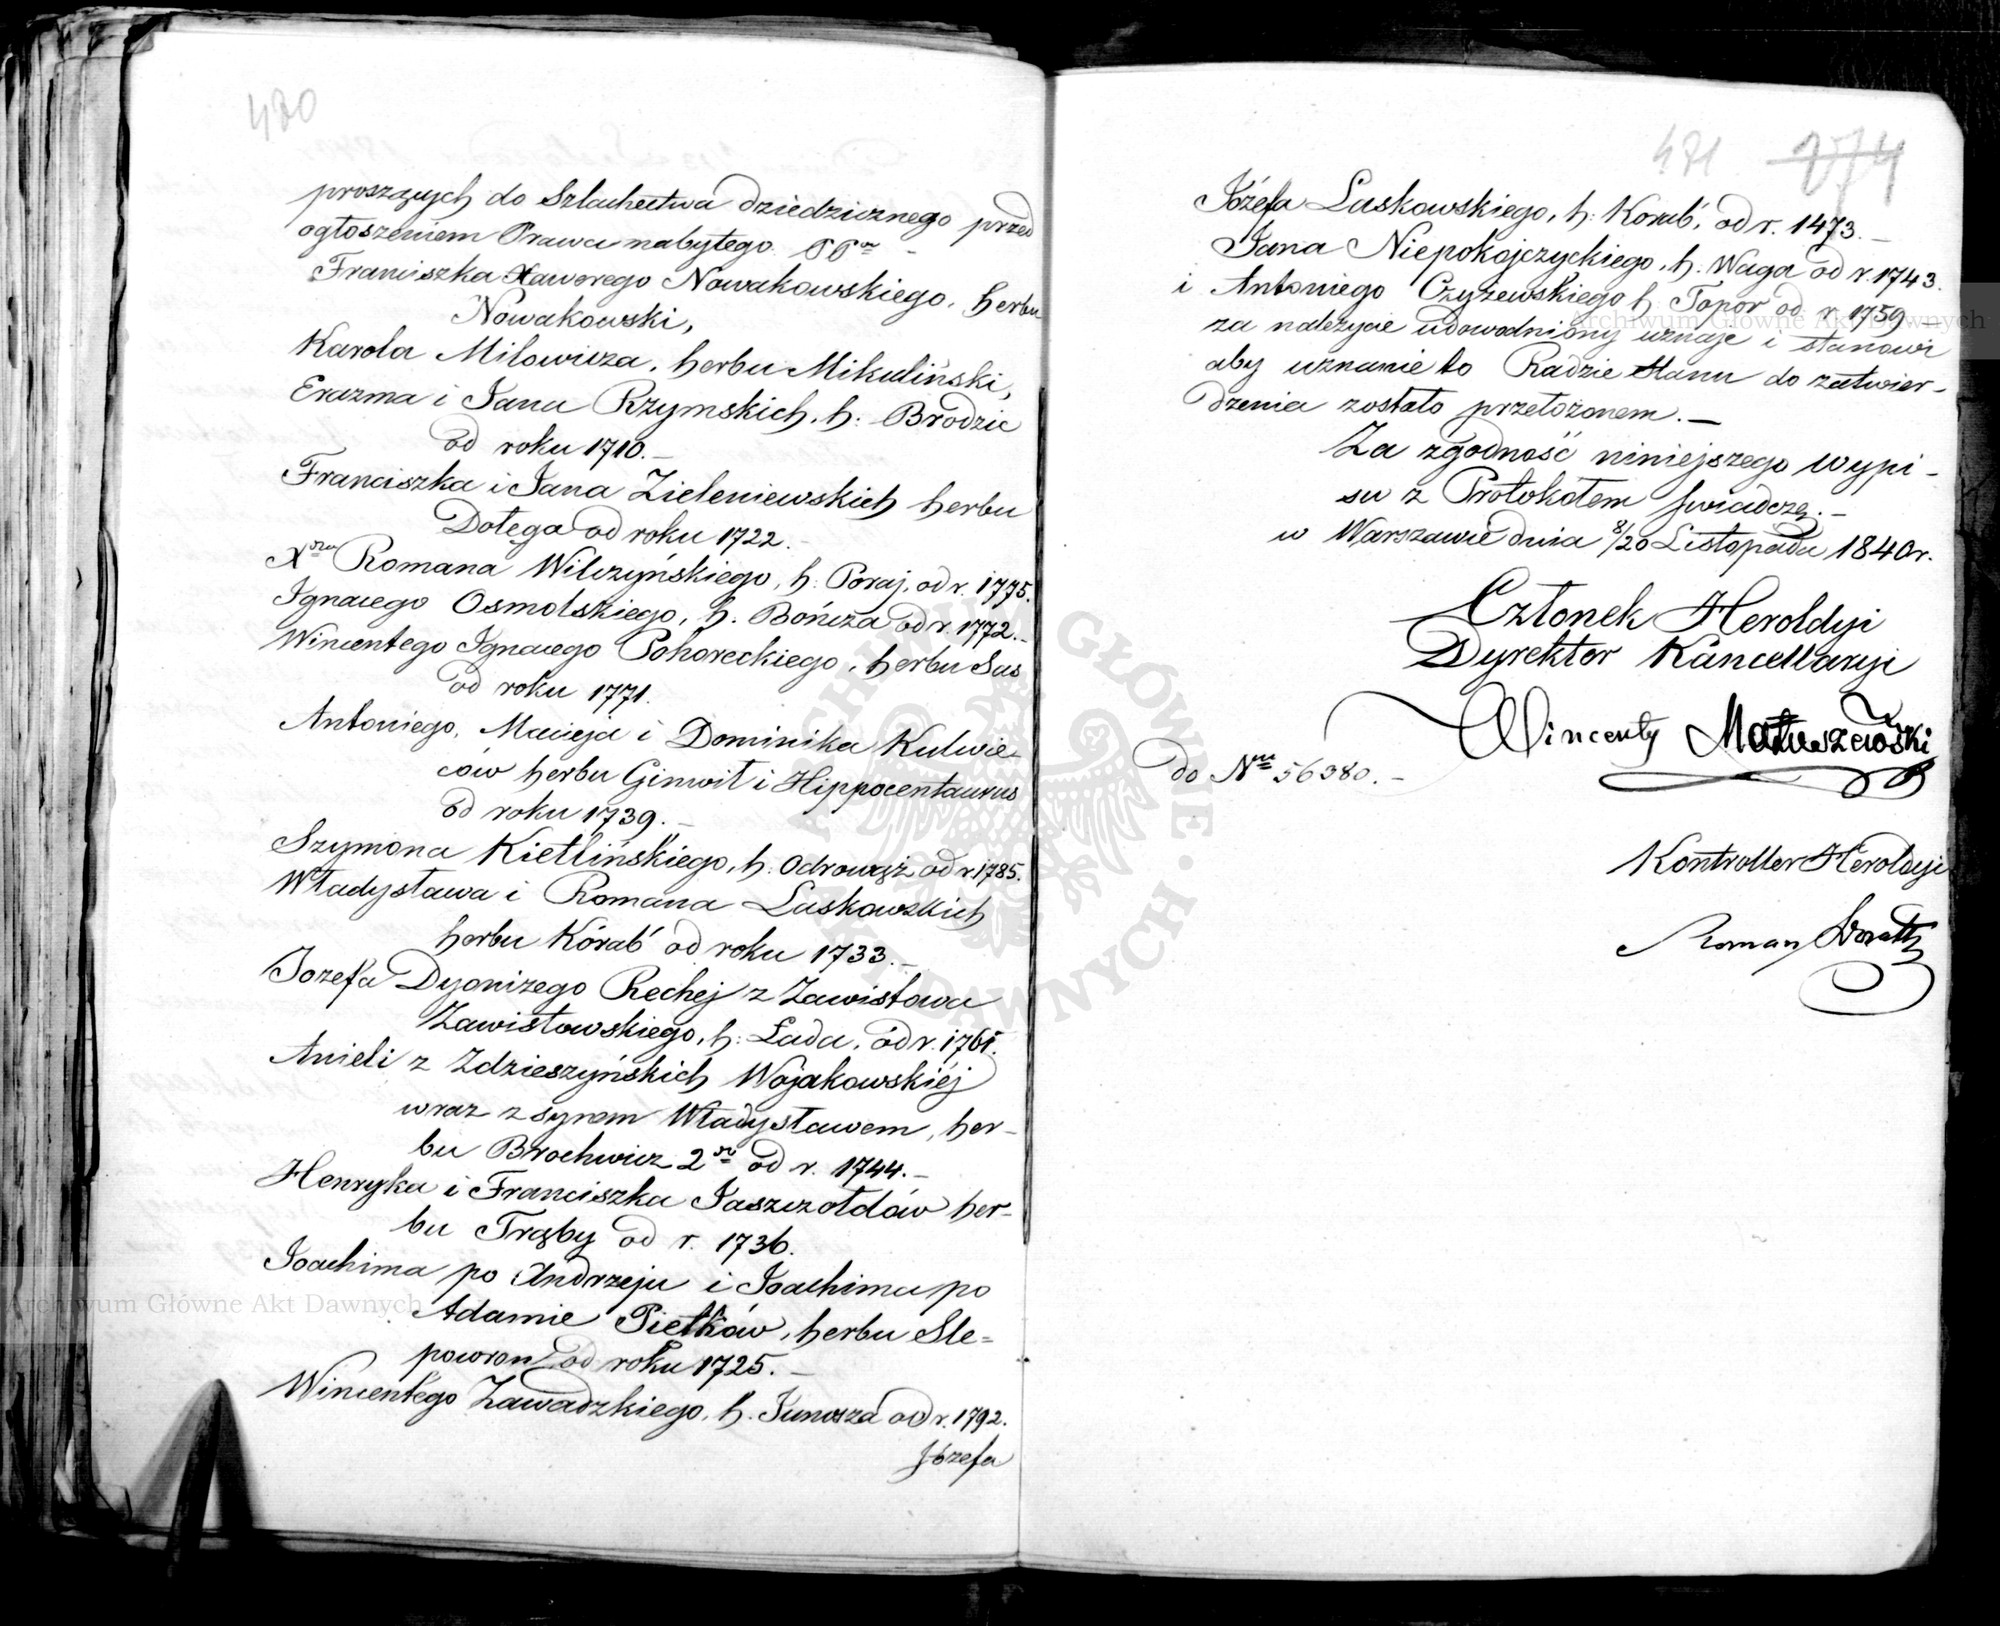 420
proszących do Szlachectwa dziedzicznego przed
ogłoszeniem Prawa nabytego PP
Franciszka Xawerego Nowakowskiego, herbu
Nowakowski,
Karola Milowicza, herbu Mikuliński,
Erazma i Jana Rzymskich, h: Brodzic
od roku 1710.—
Franciszka i Jana Zieleniewskich herbu
Dołęga od roku 1722.
Romana Wilczyńskiego, h: Poraj, od r. 1775.
Ignacego Osmolskiego, h. Bończa od r. 1772.—
Wincentego Ignacego Pohoreckiego, herbu Sas
od roku 1771.
Antoniego, Macieja i Dominika Kulwie-
ców herbu Ginwił i Hippocentaurus
od roku 1739.—
Szymona Kietlińskiego, h: Odrowąż od r. 1785.
Władysława i Romana Laskowskich
herbu Kórab' od roku 1733.—
Jozefa Dyonizego Rechej z Zawisłowa
Zawisłowskiego, h: Łada, od r. 1761.
Anieli z Zdzieszyńskich Wojakowskiéj
wraz z synem Władysławem, her-
bu Brochwicz 2go od r. 1744.—
Henryka i Franciszka Jaszczołdów her-
bu Trąby od r. 1736.
Joachima po Andrzeju i Joachima po
Adamie Pietków, herbu Sle-
powron od roku 1725.—
Wincentego Zawadzkiego, h. Junosza od r. 1792.
Józefa
421 274
Józefa Laskowskiego, h: Korab', od r. 1473.—
Jana Niepokojczyckiego, h. Waga od r. 1743.
i Antoniego Czyżewskiego h Topor od r. 1759—
za należycie udowodniony uznaje i stanowi
aby uznanie to Radzie Stanu do zatwier-
dzenia zostało przełożonem.—
Za zgodność niniejszego wypi-
su z Protokółem świadczę.—
w Warszawie dnia 8/20 Listopada 1840 r.
Członek Heroldyi
Dyrektor Kancellaryi
Wincenty Matuszewski
do Nru 56380.—
Kontroller Heroldyi
Roman
Archiwum Główne Akt Dawnych
Archiwum Główne Akt Dawnych
ARCHIWUM GŁÓWNE AKT DAWNYCH